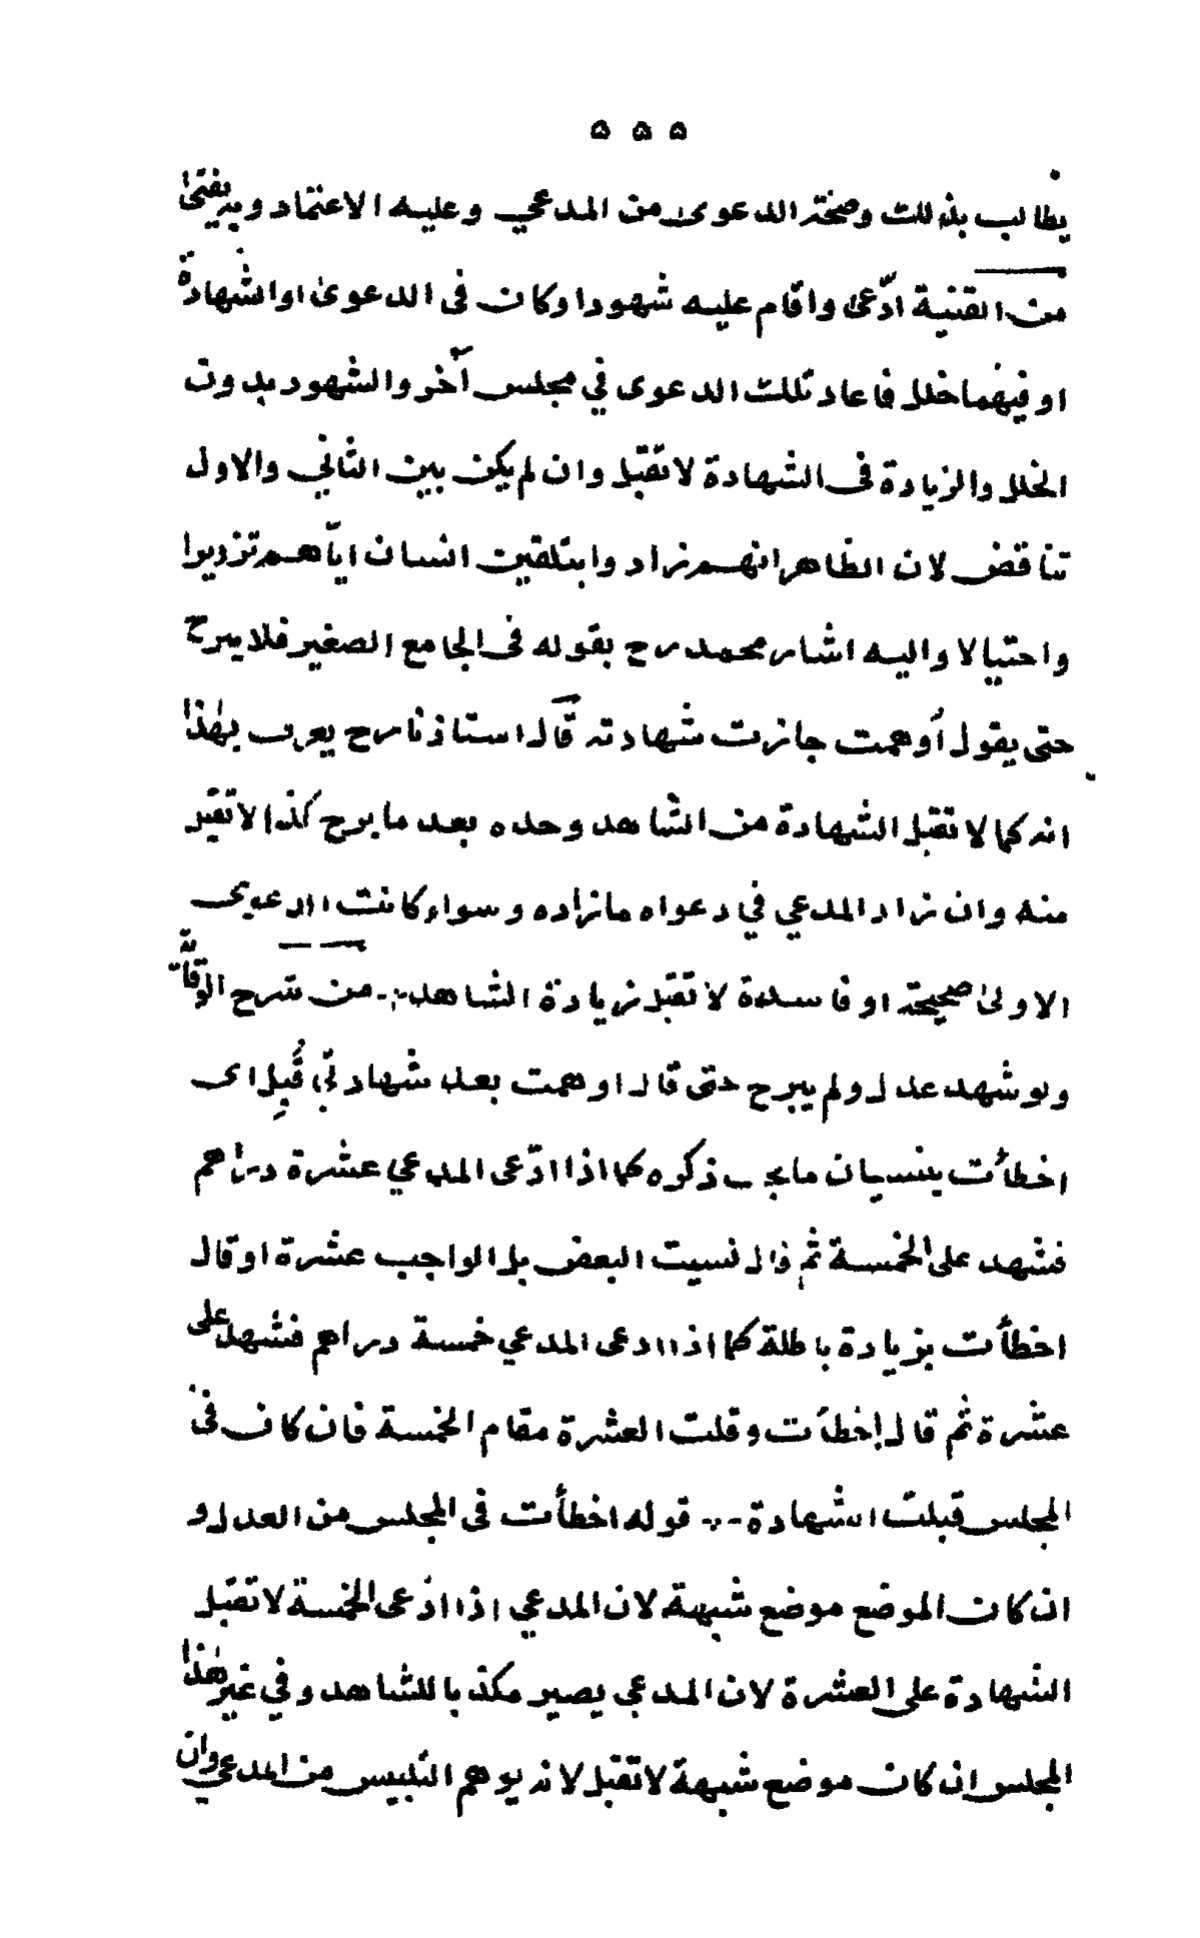 ۵۵۵
يطالب بذلك وصحة الدعوى من المدعي وعليه الاعتماد وبه يفتى
من القنية ادّعى واقام عليه شهودا وكان فى الدعوى او الشهادة
او فيهما خلل فاعاد تلك الدعوى في مجلس آخر والشهود بدون
الخلل والزيادة فى الشهادة لا تقبل وان لم يكن بين الثاني والاول
تناقض لان الظاهر انهم زادوا بتلقين انسان ايّاهم تزويرا
واحتيالا واليه اشار محمد رح بقوله فى الجامع الصغير فلا يبرح
حتى يقول أوهمت جازت شهادته قال استاذنا رح يعرب بهذا
انه كما لا تقبل الشهادة من الشاهد وحده بعد ما برح كذا لا تقبل
منه وان زاد المدعي في دعواه ما زاده وسواء كانت الدعوى
الاولى صحيحة او فاسدة لا تقبل زيادة الشاهد ؞ من شرح الوقاية
ولو شهد عدل ولم يبرح حتى قال اوهمت بعد شهادتي قُبِل اى
اخطأت بنسيان ما يجب ذكره كما اذا ادّعى المدعي عشرة دراهم
فشهد على الخمسة ثم قال نسيت البعض بل الواجب عشرة او قال
اخطأت بزيادة باطلة كما اذا ادعى المدعي خمسة دراهم فشهد على
عشرة ثم قال اخطأت وقلت العشرة مقام الخمسة فان كان فى
المجلس قبلت الشهادة ؞ قوله اخطأت فى المجلس من العدل و
ان كان الموضع موضع شبهة لان المدعي اذا ادّعى الخمسة لا تقبل
الشهادة على العشرة لان المدعي يصير مكذبا للشاهد وفي غير هذا
المجلس ان كان موضع شبهة لا تقبل لانه يوهم التلبيس من المدعي وان